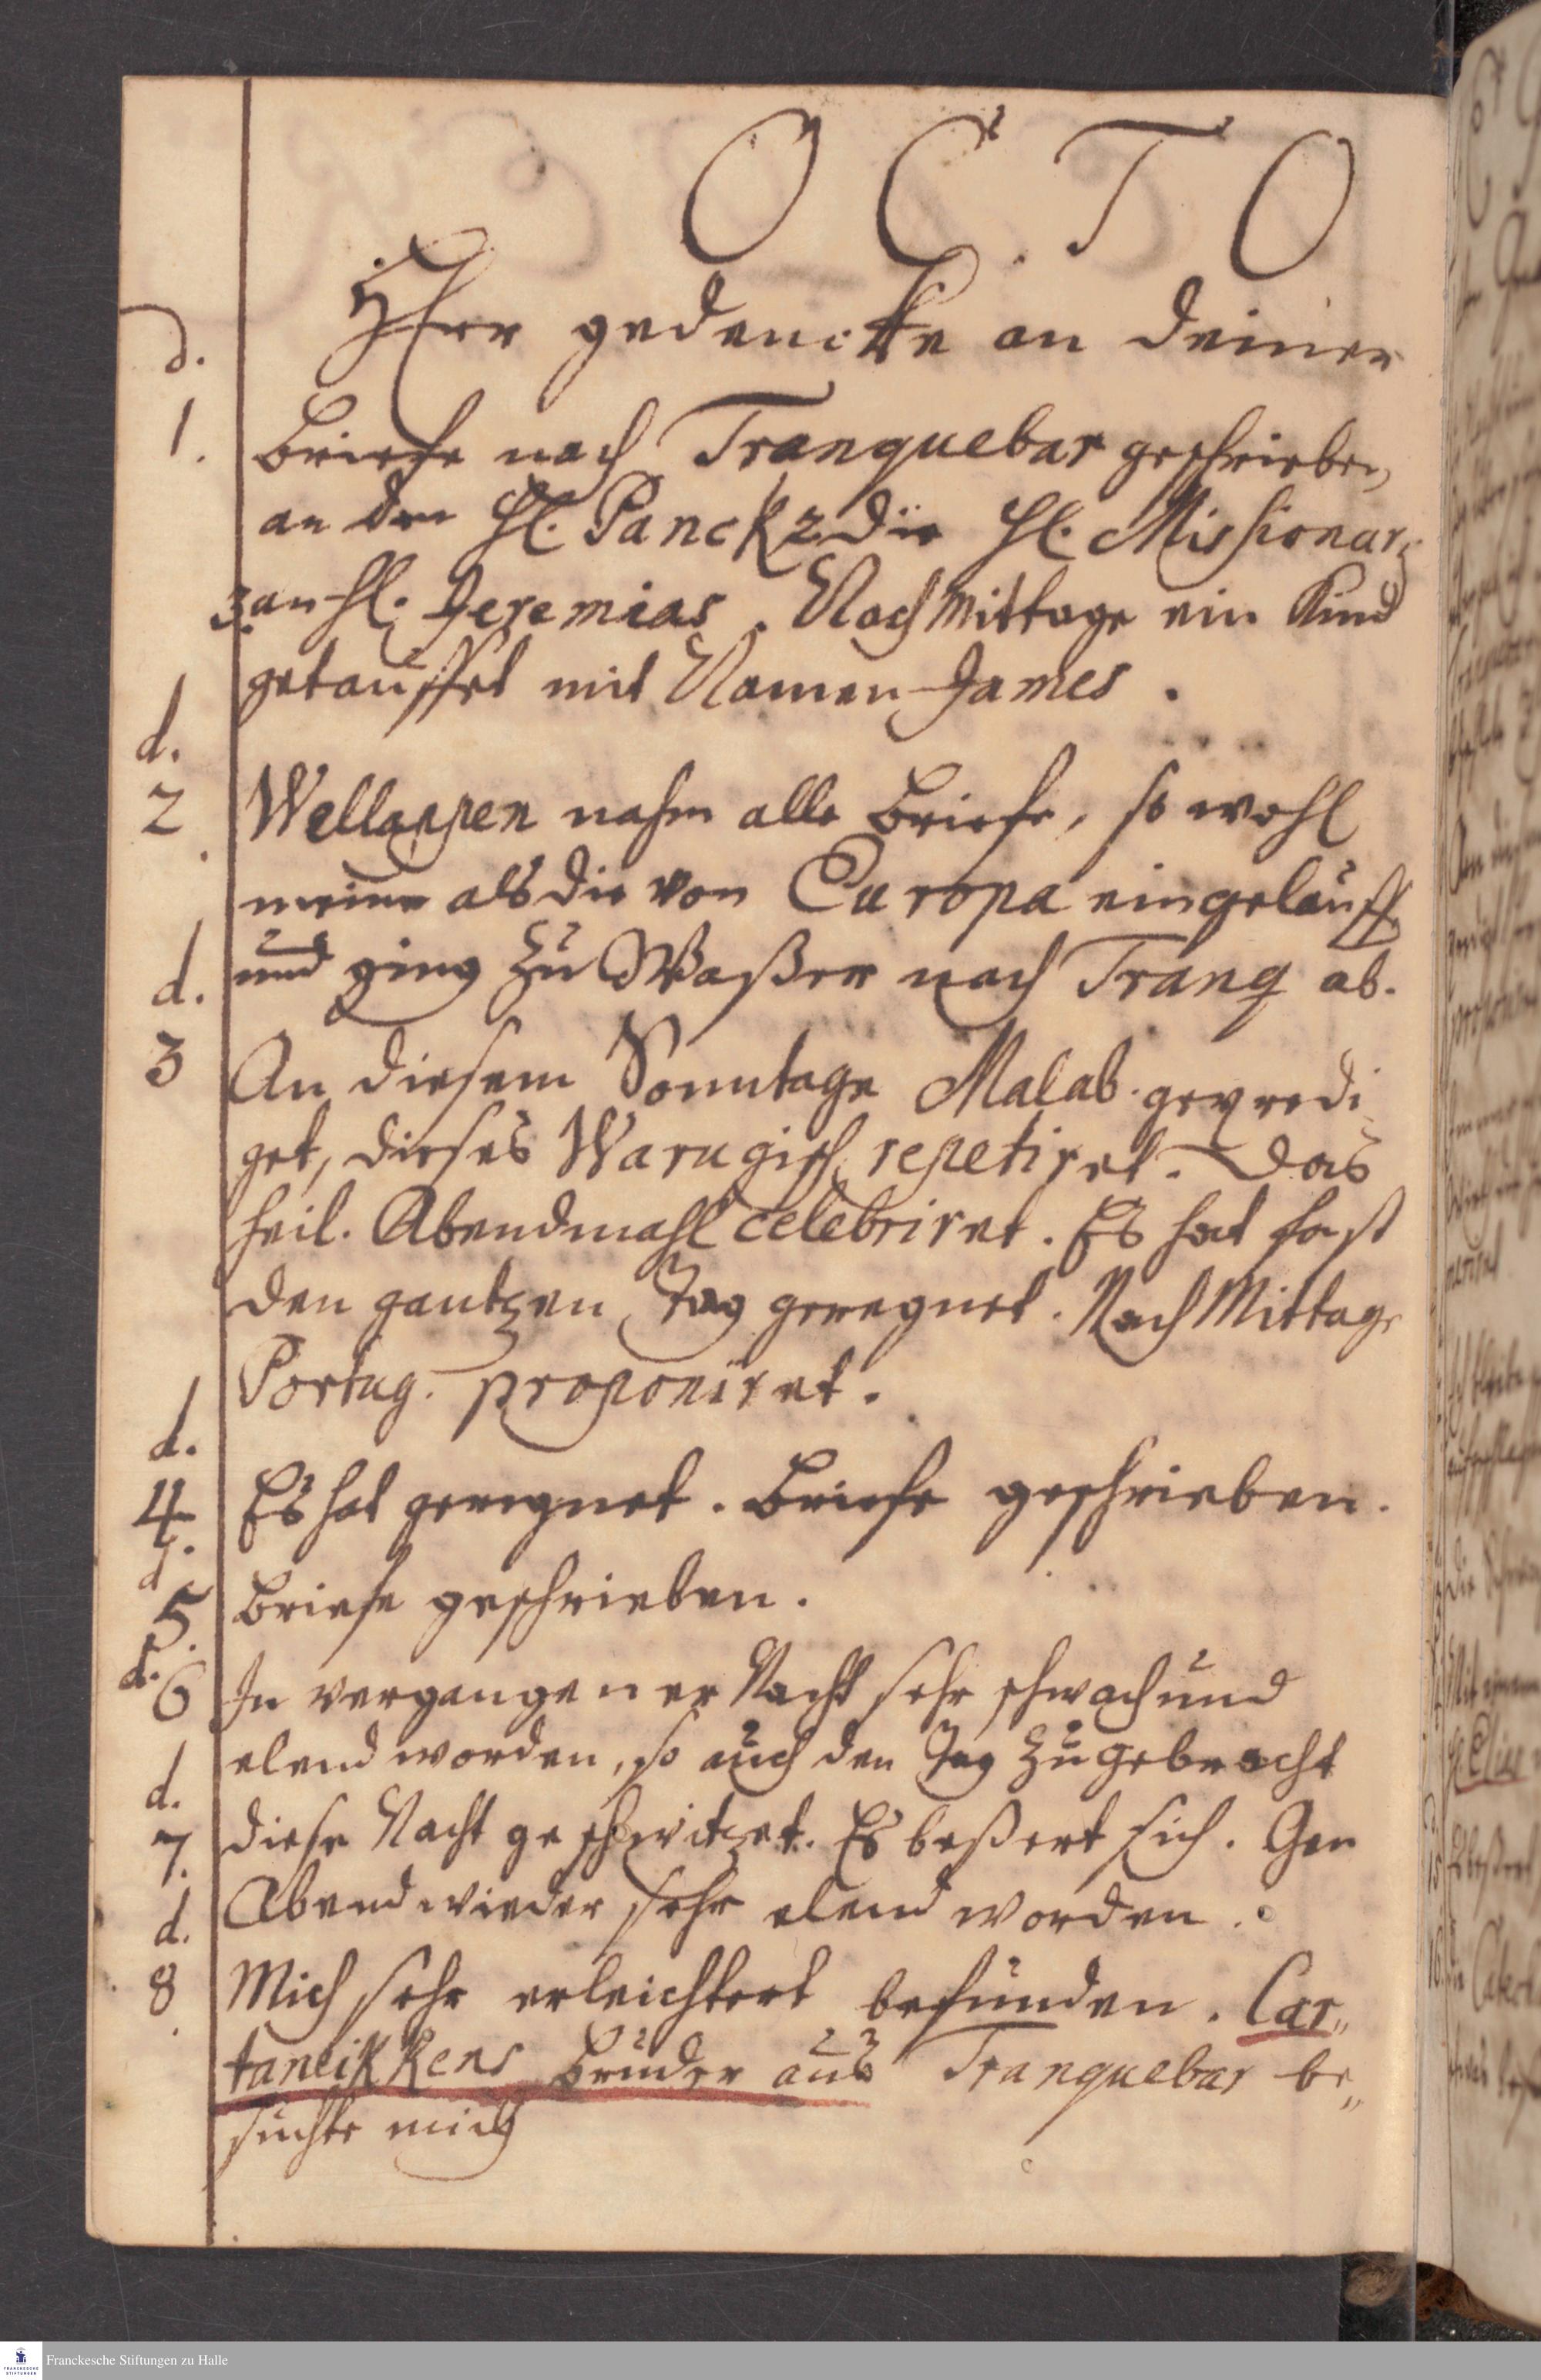 O C T O
d. HErr gedencke an deiner
1. Briefe nach Tranquebar geschrieben,
an den H. Panck 2 die H. Missionar.
3. an H. Jeremias. Nachmittage ein Kind
getauffet mit Namen James.
d.
2 Wellappen nahm alle Briefe, so wohl
meine als die von Europa eingelauff.
d. und ging zu Waßer nach Tranq ab.
3 An diesem Sonntage Malab. gepredi
get, dieses Warugisch repetiret. Das
heil. Abendmahl celebriret. Es hat fast
den gantzen Tag geregnet. Nach Mittage
Portug. proponiret.
d.
4. Es hat geregnet. Briefe geschrieben.
d.
5. Briefe geschrieben.
d. 6 In vergangener Nacht sehr schwach und
elend worden, so auch den Tag zugebracht
d.
7. diese Nacht geschwitzet. Es beßert sich. Gen
d. Abend wieder sehr elend worden.
8. Mich sehr erleichtert befunden. Car„
taneikkens Bruder aus Tranquebar be„
suchte mich
Franckesche Stiftungen zu Halle
FRANCKESCHE STIFTUNGEN